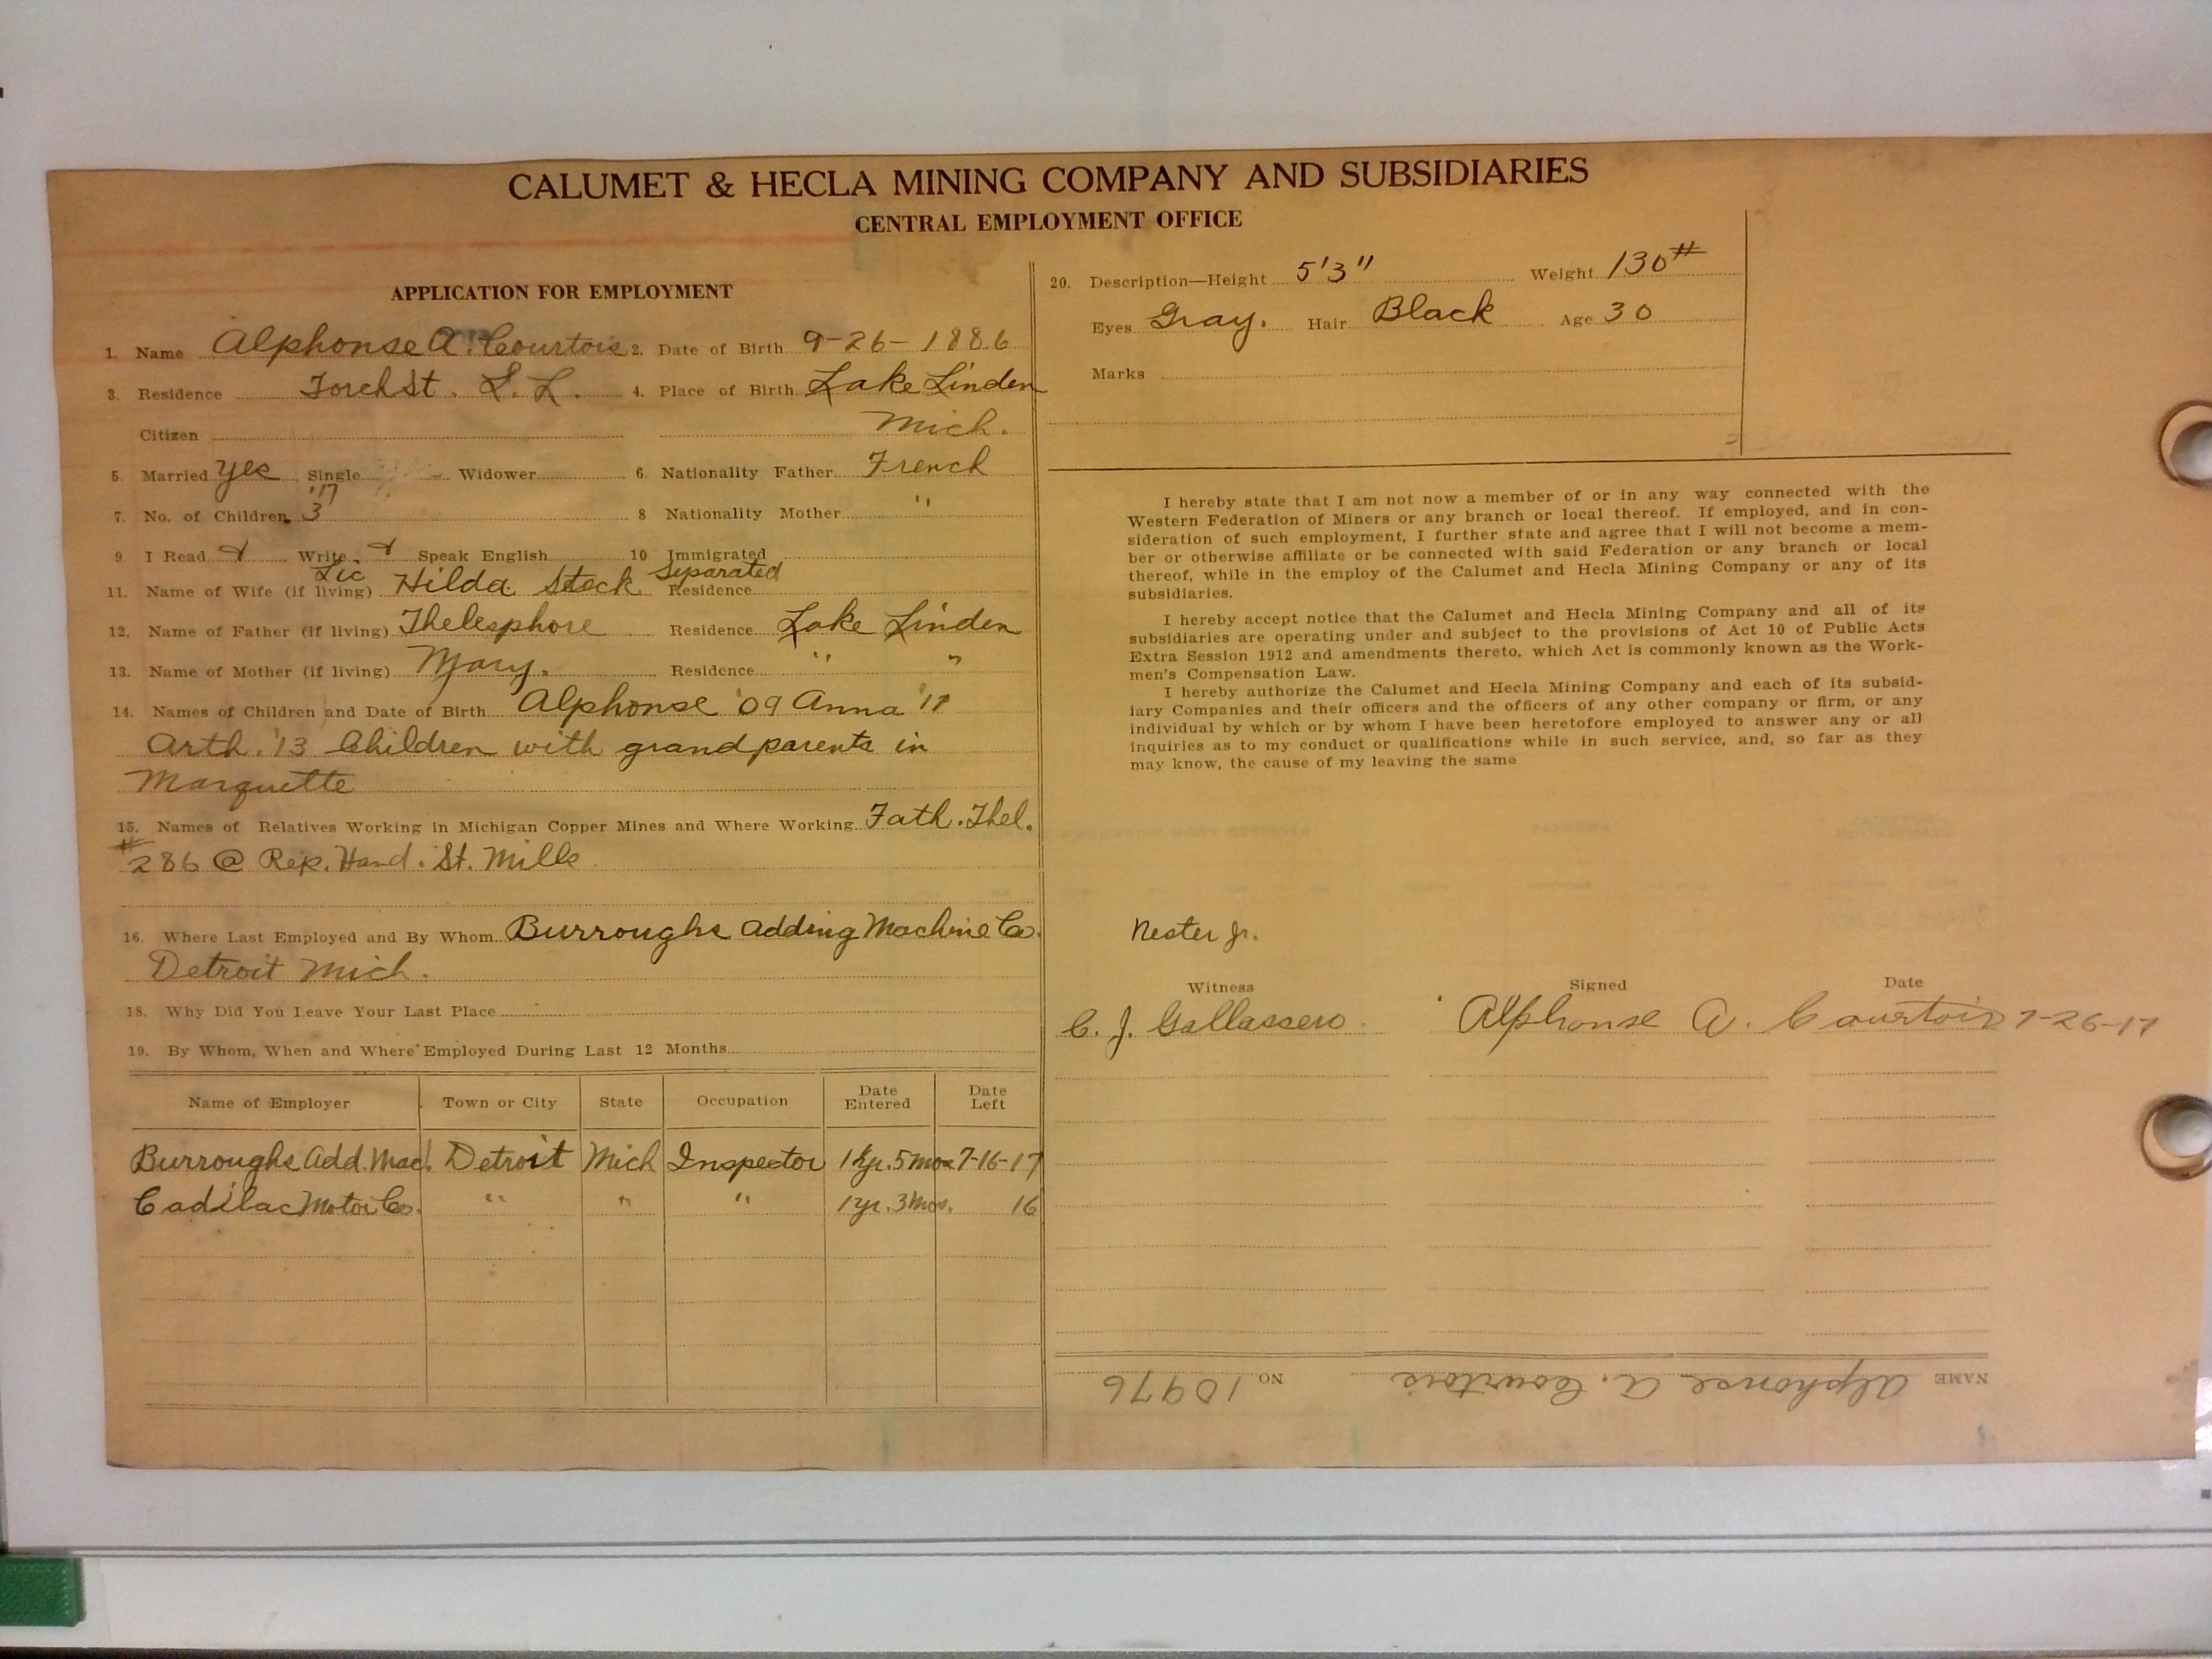 CALUMET & HECLA MINING COMPANY AND SUBSIDIARIES
CENTRAL EMPLOYMENT OFFICE
APPLICATION FOR EMPLOYMENT
1. Name Alphonse A. Courtois 2. Date of Birth 9-26-1886
3. Residence Torch St. L. L. 4. Place of Birth Lake Linden
Citizen Mich.
5. Married yes Single Widower 6. Nationality Father French
'17
7. No. of Children 3 8 Nationality Mother "
9 I Read Write Speak English 10 Immigrated
Separated
11. Name of Wife (if living) Hilda Residence
12. Name of Father (if living) Thelesphore Residence Lake Linden
13. Name of Mother (if living) Mary. Residence " "
14. Names of Children and Date of Birth Alphonse '09 Anna '11
Arth. '13 Children with grandparents in
Marquette
15. Names of Relatives Working in Michigan Copper Mines and Where Working Fath. Thel.
#286 @ Rep. Hand. St. Mills
16. Where Last Employed and By Whom Burroughs Adding Machine Co.
Detroit Mich.
18. Why Did You Leave Your Last Place
19. By Whom, When and Where Employed During Last 12 Months
Name of Employer Town or City State Occupation Date Entered Date Left
Burroughs Add. Mac. Detroit Mich Inspector 1 yr. 5 mos 7-16-17
Cadilac Motor Co. " " " 1 yr. 3 mos. 16
20. Description—Height 5'3" Weight 130#
Eyes Gray. Hair Black Age 30
Marks
I hereby state that I am not now a member of or in any way connected with the
Western Federation of Miners or any branch or local thereof. If employed, and in con-
sideration of such employment, I further state and agree that I will not become a mem-
ber or otherwise affiliate or be connected with said Federation or any branch or local
thereof, while in the employ of the Calumet and Hecla Mining Company or any of its
subsidiaries.
I hereby accept notice that the Calumet and Hecla Mining Company and all of its
subsidiaries are operating under and subject to the provisions of Act 10 of Public Acts
Extra Session 1912 and amendments thereto, which Act is commonly known as the Work-
men's Compensation Law.
I hereby authorize the Calumet and Hecla Mining Company and each of its subsid-
iary Companies and their officers and the officers of any other company or firm, or any
individual by which or by whom I have been heretofore employed to answer any or all
inquiries as to my conduct or qualifications while in such service, and, so far as they
may know, the cause of my leaving the same
Nester Jr.
Witness Signed Date
C. J. Gallassero Alphonse A. Courtois 7-26-17
NAME Alphonse A. Courtois NO 10976